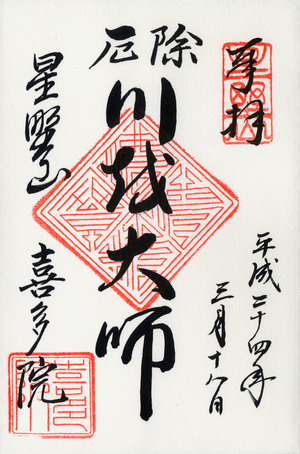 奉拝
平成二十四年
三月十八日
厄除
川越大師
星野山
喜多院